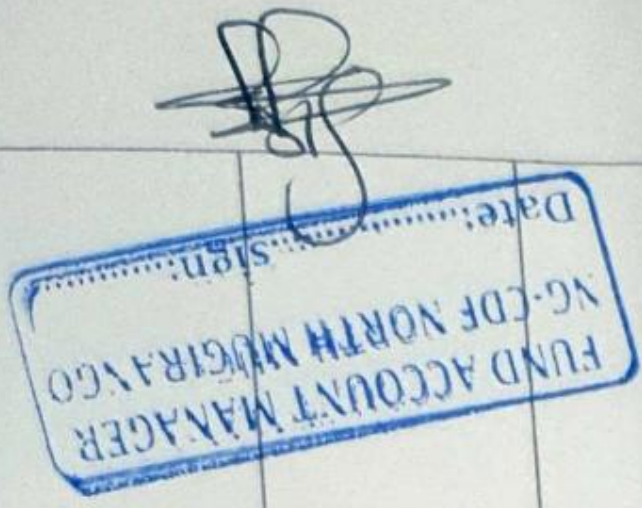 FUND ACCOUNT MANAGER
NG-CDF NORTH MUGIRANGO
Date:....................Sign:....................